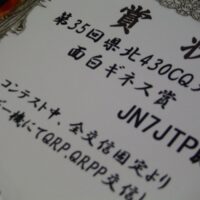 賞状
第35回県北430CQ
面白ギネス賞
JN7JTP
コンテスト中、全交信固定より
機にてQRP,QRPP交信し